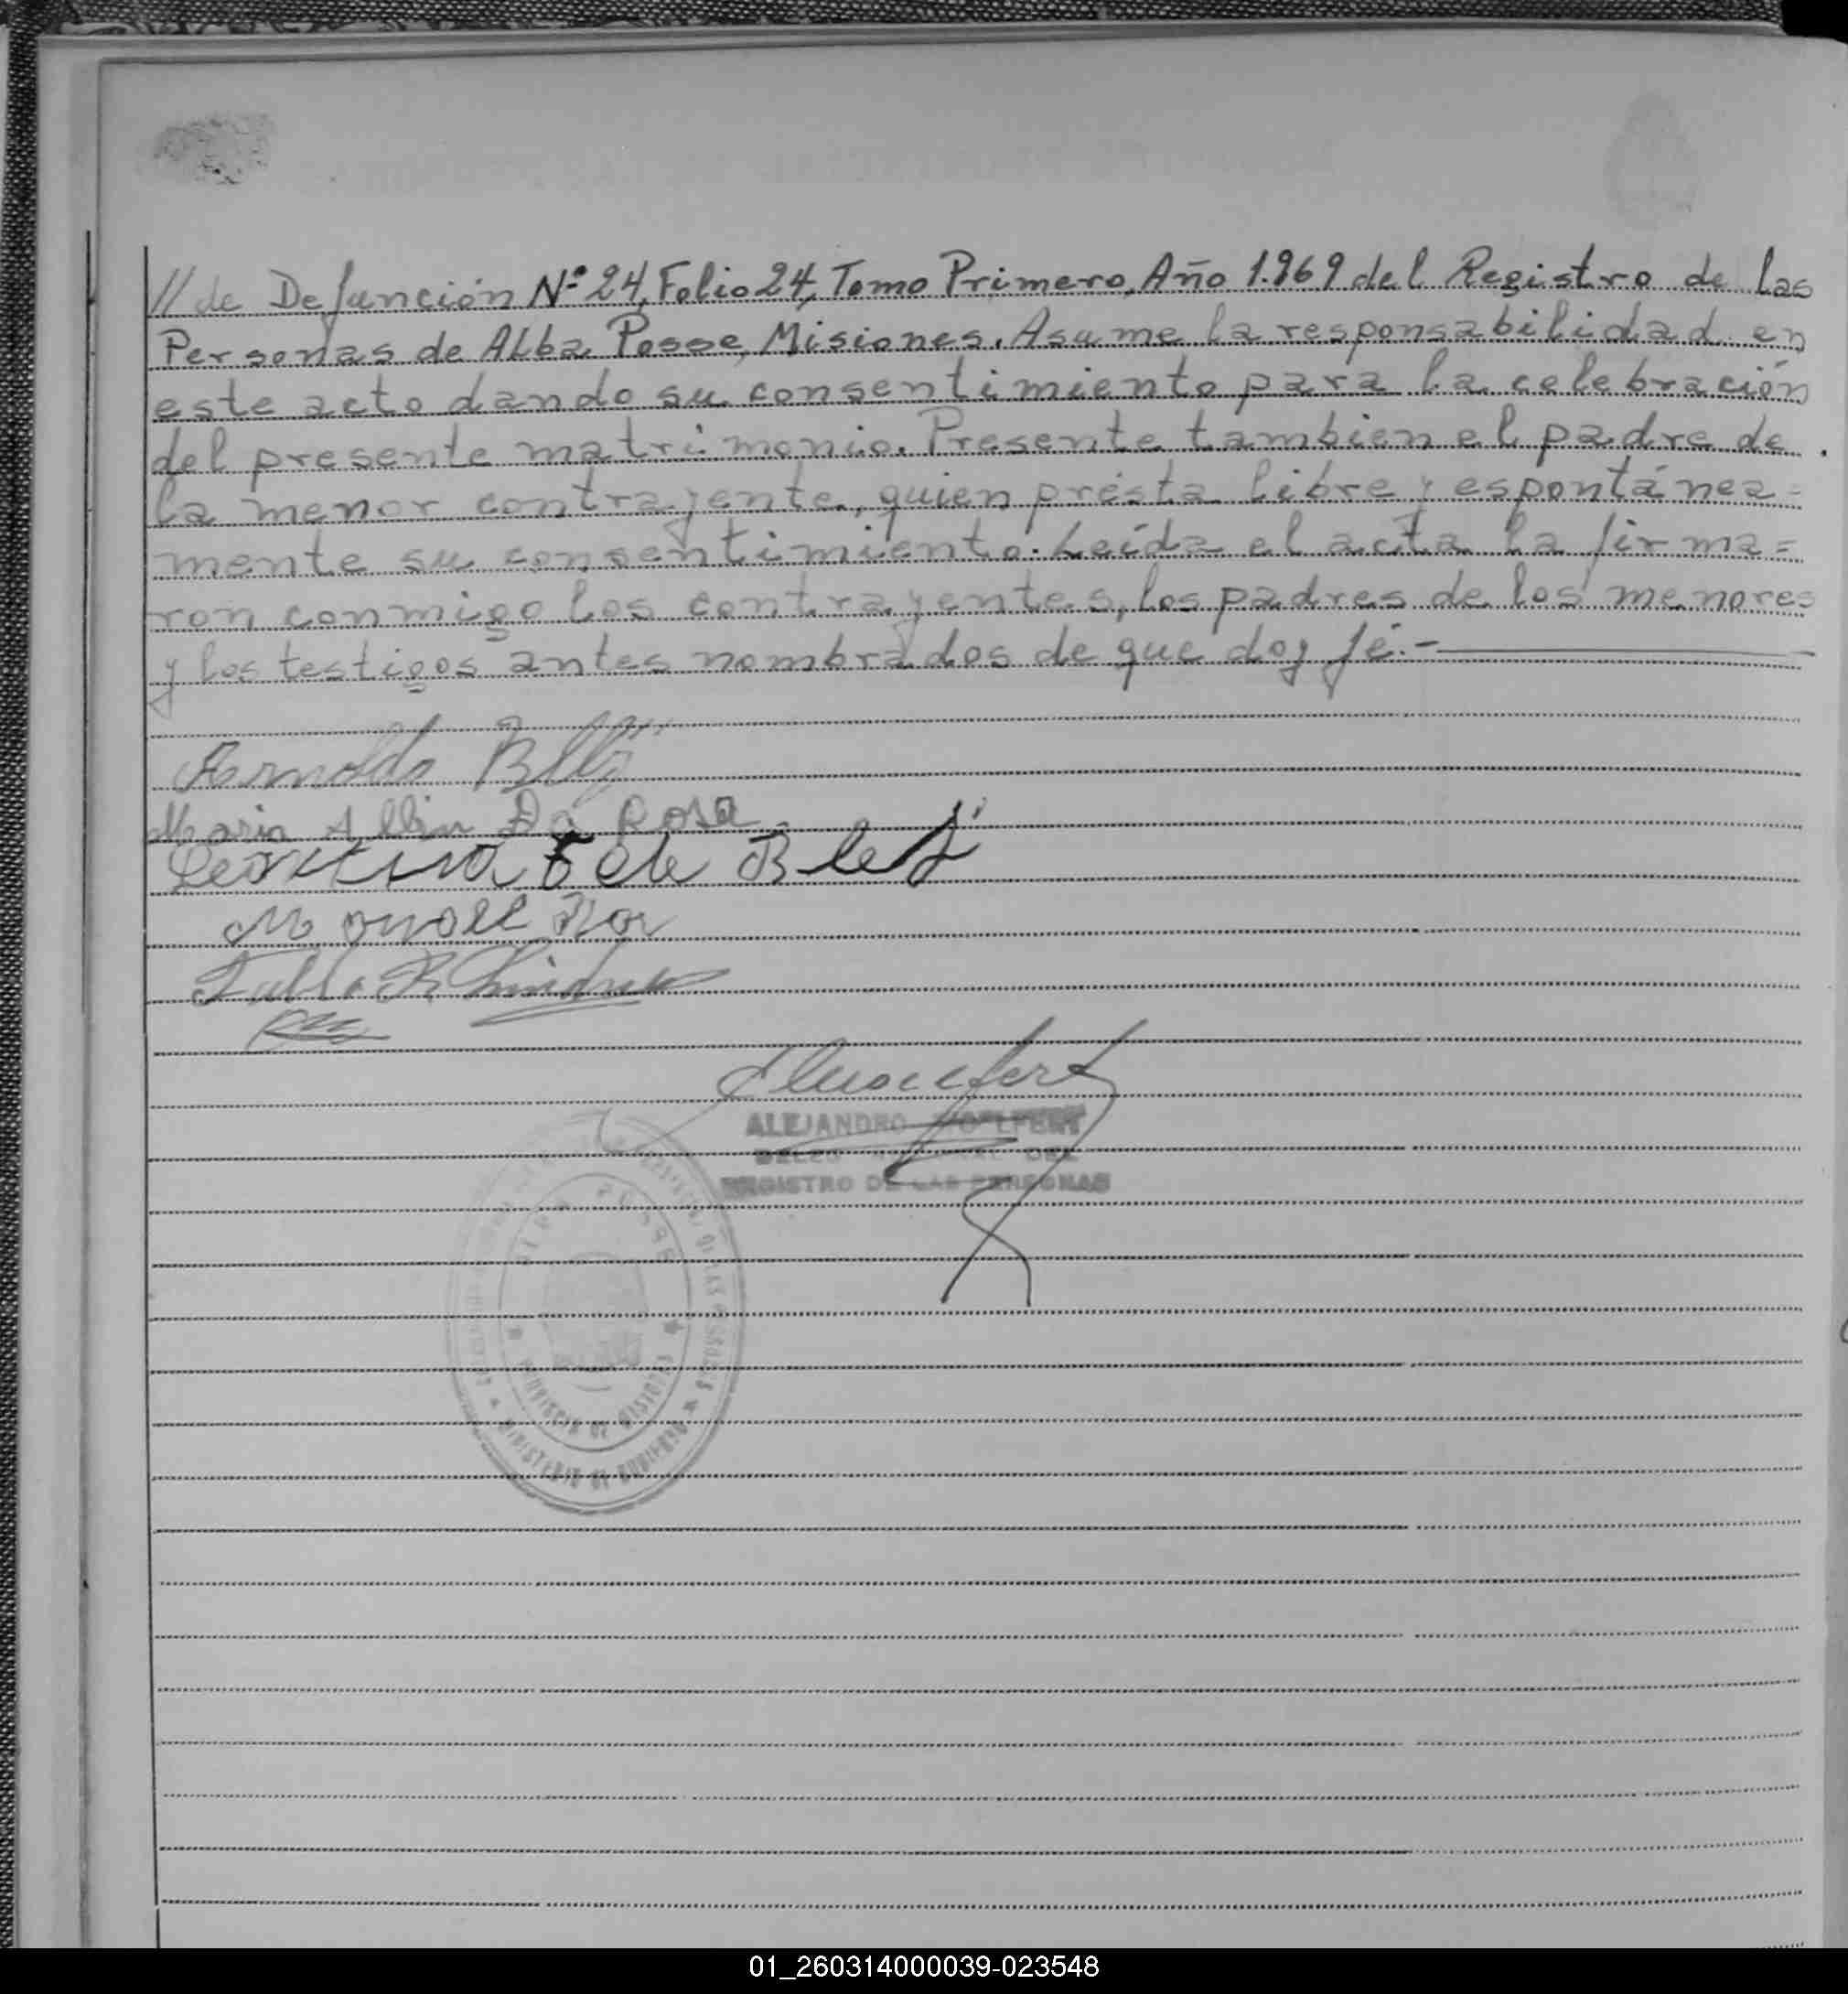 // de Defunción Nº 24, Folio 24, Tomo Primero, Año 1.969 del Registro de las
Personas de Alba Posse, Misiones. Asume la responsabilidad en
este acto dando su consentimiento para la celebración
del presente matrimonio. Presente tambien el padre de
la menor contrayente, quien présta libre y espontánea=
mente su consentimiento. Leída el acta la firma=
ron conmigo los contrayentes, los padres de los menores
y los testigos antes nombrados de que doy fé.-
Arnoldo
Maria Da Rosa
de
ALEJANDRO
DEL
REGISTRO DE LAS PERSONAS
ALBA POSSE
PROVINCIA DE MISIONES
MINISTERIO DE GOBIERNO
01_260314000039-023548